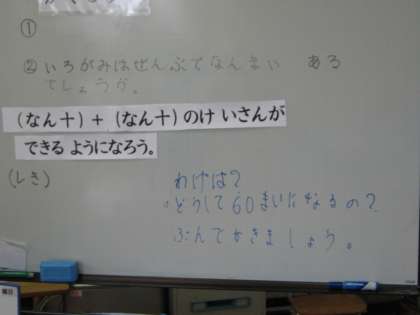 ①
②いろがみはぜんぶでなんまい ある
でしょうか。
(なん十)+(なん十)のけいさんが
できるようになろう。
(しき)
わけは?
どうして60まいになるの?
ぶんでかきましょう。